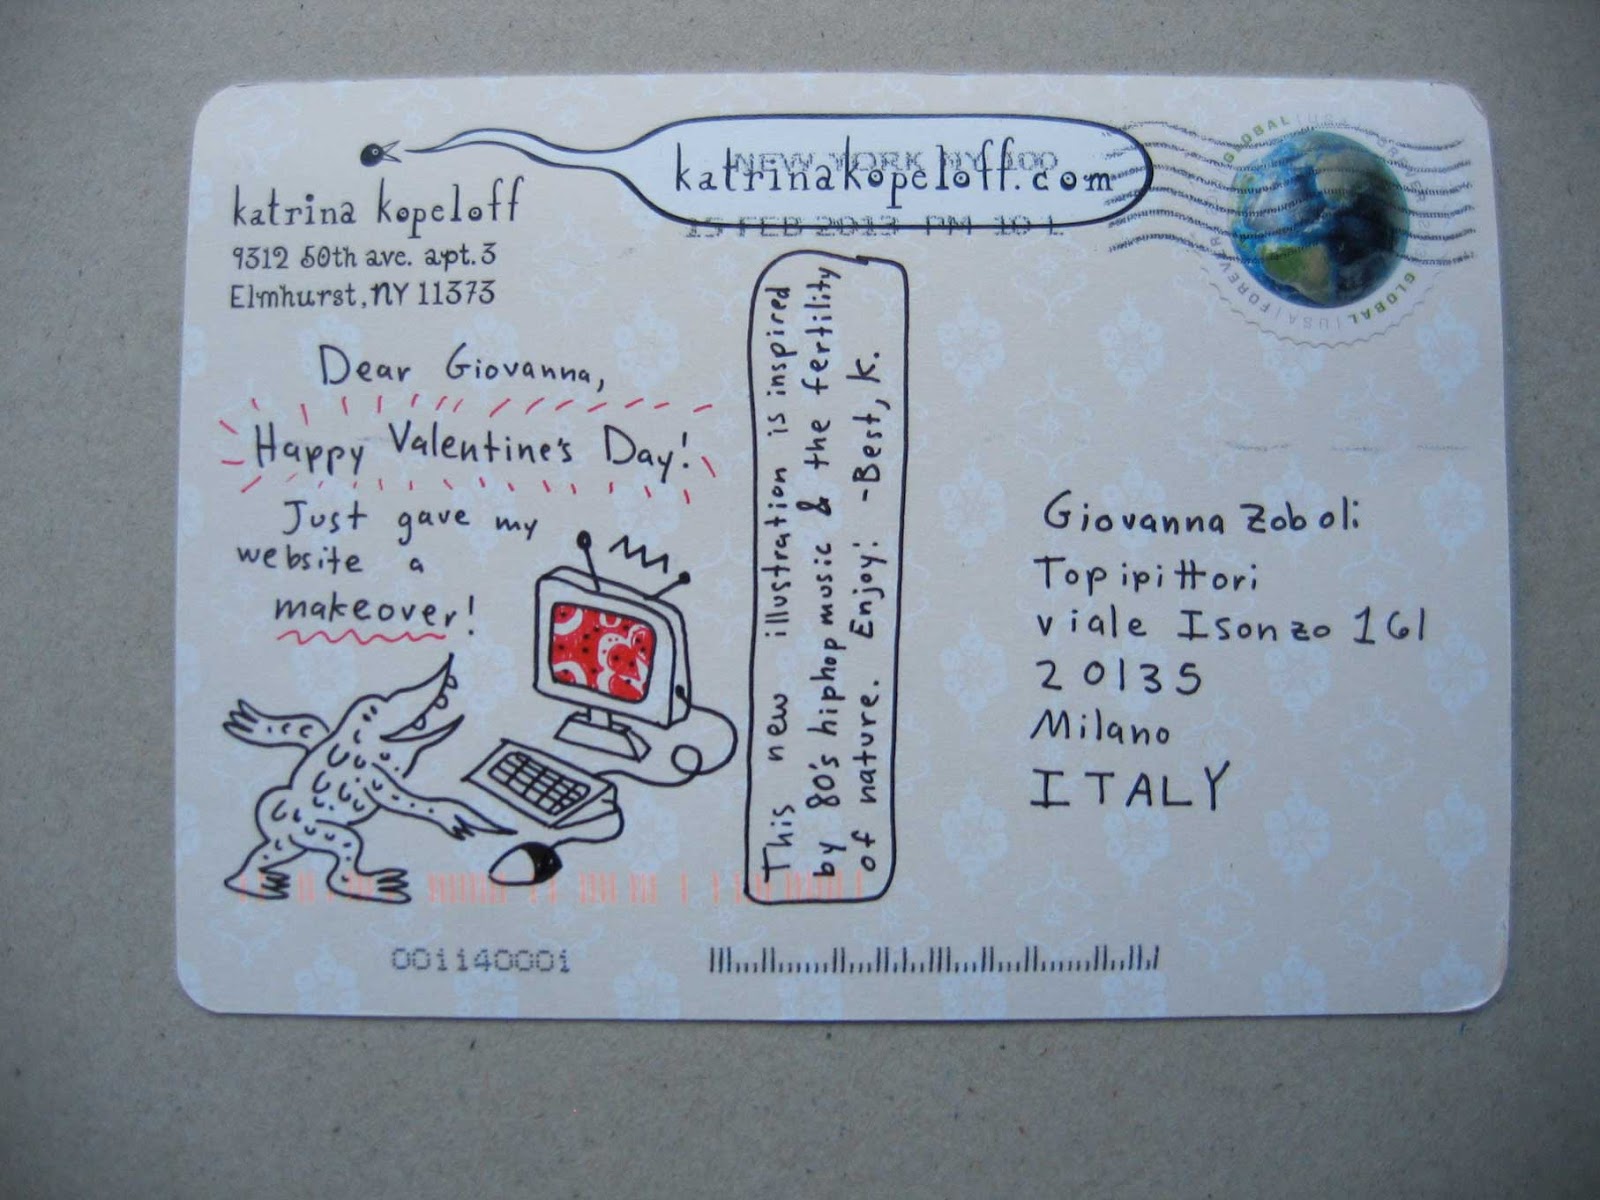 katrinakopeloff.com
NEW YORK NY 100
15 FEB 2013 PM 10 L
katrina kopeloff
9312 50th ave. apt. 3
Elmhurst, NY 11373
GLOBAL | USA | FOREVER
GLOBAL | USA | FOREVER
Dear Giovanna,
Happy Valentine's Day!
Just gave my
website a
makeover!
This new illustration is inspired
by 80's hiphop music & the fertility
of nature. Enjoy! -Best, K.
Giovanna Zoboli
Topipittori
viale Isonzo 161
20135
Milano
ITALY
001140001